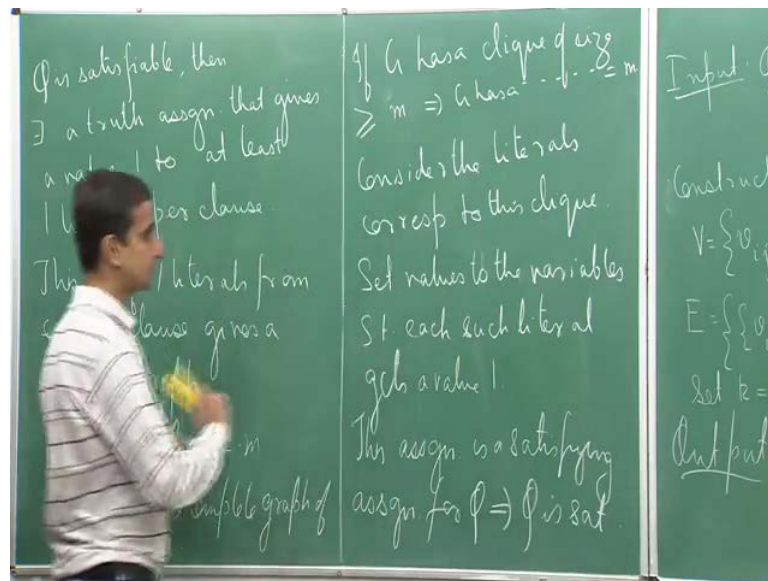 φ is satisfiable, then
∃ a truth assgn. that gives
a 1 to at least
1 per clause.
This literals from
clause gives a
m
complete graph of
If G has a clique of size
≥ m ⇒ G has a - - - - - = m
Consider the literals
corresp to this clique.
Set values to the variables
St. each such literal
gets a value 1.
This assgn. is a satisfying
assgn for φ ⇒ φ is sat.
Input:
Construc
V = {v
E = {{v
Set k =
Output